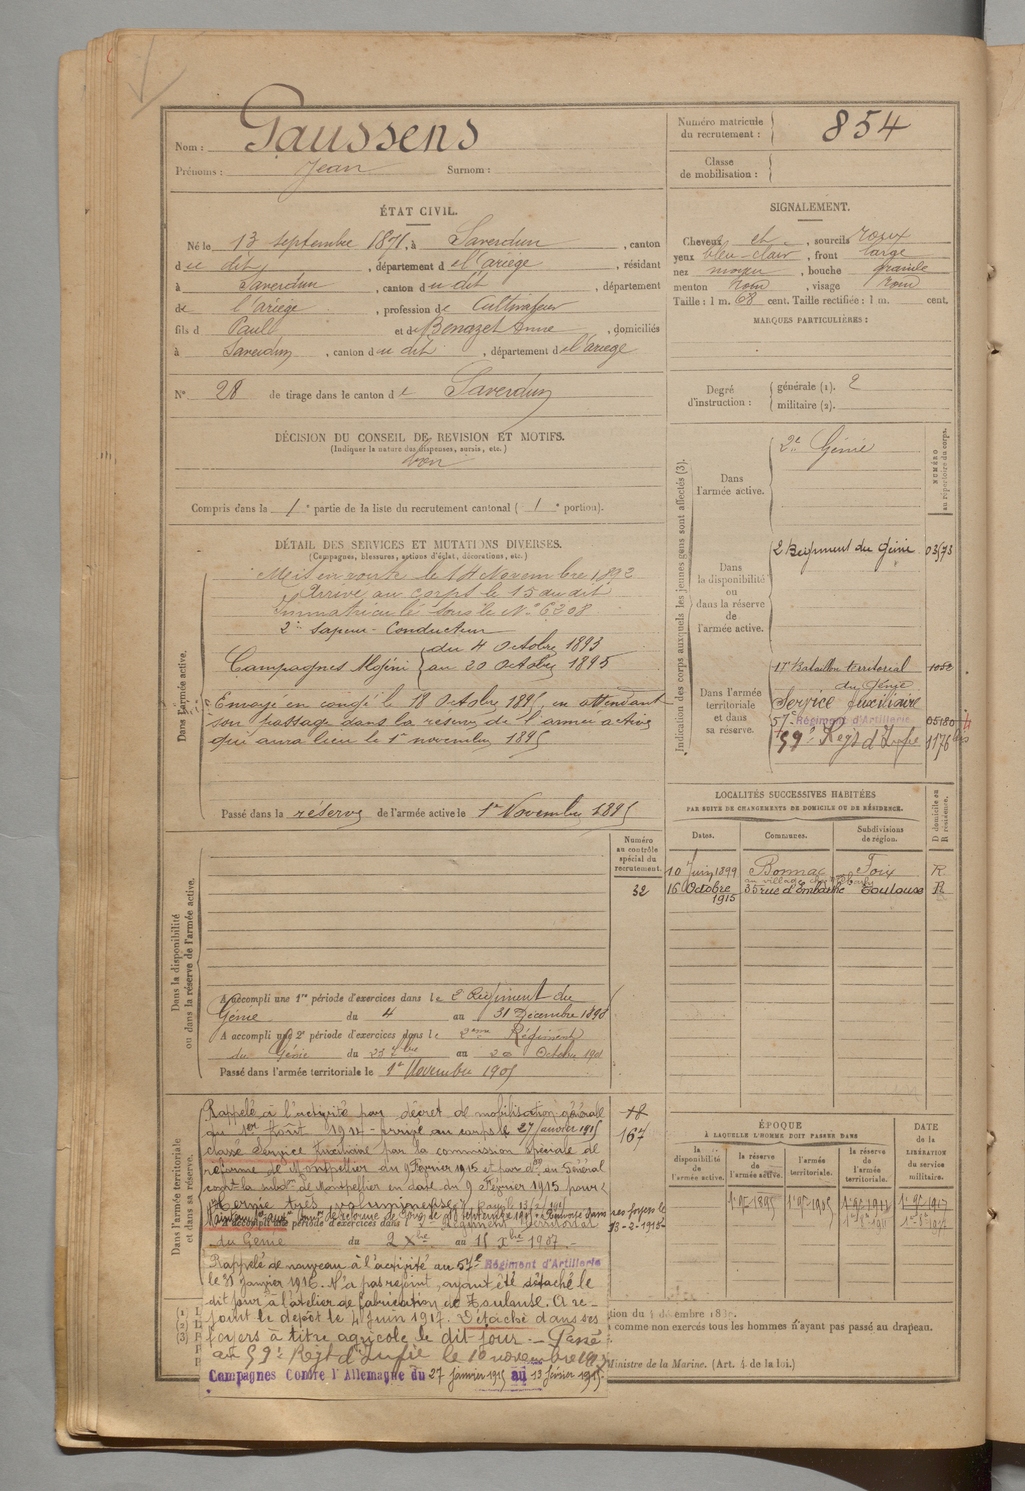 Nom : Gaussens
Prénoms : Jean Surnom :
Numéro matricule du recrutement : 854
Classe de mobilisation :
ÉTAT CIVIL.
Né le 13 septembre 1871, à Saverdun, canton
du dit, département de l'Ariège, résidant
à Saverdun, canton du dit, département
de l'Ariège, profession de Cultivateur
fils d Paul et de Benazet Anne, domiciliés
à Saverdun, canton du dit, département de l'ariège
N° 28 de tirage dans le canton de Saverdun
SIGNALEMENT.
Cheveux et, sourcils roux
yeux bleu-clair, front large
nez moyen, bouche grande
menton rond, visage rond
Taille : 1 m. 68 cent. Taille rectifiée : 1 m. cent.
MARQUES PARTICULIÈRES :
Degré d'instruction : générale (1). 2
militaire (2).
DÉCISION DU CONSEIL DE REVISION ET MOTIFS.
(Indiquer la nature des dispenses, sursis, etc.)
bon
Compris dans la 1e partie de la liste du recrutement cantonal ( 1e portion).
DÉTAIL DES SERVICES ET MUTATIONS DIVERSES.
(Campagnes, blessures, actions d'éclat, décorations, etc.)
Dans l'armée active.
Mis en route le 14 Novembre 1892
Arrivé au corps le 15 du dit
Immatriculé sous le N° 6308
2e Sapeur-Conducteur
Campagnes Algérie du 4 Octobre 1893
au 20 Octobre 1895
Envoyé en congé le 18 Octobre 1895, en attendant
son passage dans la réserve de l'armée active
qui aura lieu le 1er novembre 1895
Passé dans la réserve de l'armée active le 1er Novembre 1895
Indication des corps auxquels les jeunes gens sont affectés (3).
NUMÉRO au répertoire du corps.
Dans l'armée active.
2e Génie
Dans la disponibilité ou dans la réserve de l'armée active.
2 Régiment du Génie 03573
Dans l'armée territoriale et dans sa réserve.
17e Bataillon territorial du Génie 1052
Service Auxiliaire
57e Régiment d'Artillerie 05180
59e Regt d'Infie 1176 bis
LOCALITÉS SUCCESSIVES HABITÉES
PAR SUITE DE CHANGEMENTS DE DOMICILE OU DE RÉSIDENCE.
Dates. Communes. Subdivisions de région. D domicile ou R résidence.
10 Juin 1899 Bonnac Foix R
16 Octobre 1915 35 rue d'Embarthe Toulouse R
Dans la disponibilité ou dans la réserve de l'armée active.
Numéro au contrôle spécial du recrutement.
32
A accompli une 1re période d'exercices dans le 2 Régiment du
Génie du 4 au 31 Décembre 1898
A accompli une 2e période d'exercices dans le 2eme Régiment
du Génie du 23 7bre au 20 Octobre 1901
Passé dans l'armée territoriale le 1er Novembre 1905
Dans l'armée territoriale et dans sa réserve.
18
167
Rappelé à l'activité par décret de mobilisation générale
du 1er Août 1914 - arrivé au corps le 27 janvier 1915
classé Service Auxiliaire par la commission spéciale de
réforme de Montpellier du 9 Février 1915 et par don du Général
comt la subdon de Montpellier en date du 9 Février 1915 pour
Hernie très volumineuse
foyers le 13-2-1915
A accompli une période d'exercices dans le Régiment territorial
du Génie du 2 Xbre au 15 Xbre 1907.
Rappelé de nouveau à l'activité au 57e Régiment d'Artillerie
le 31 janvier 1916. N'a pas rejoint, ayant été détaché le
dit jour à l'atelier de fabrication de Toulouse. A re-
joint le dépôt le 4 juin 1917. Détaché dans ses
foyers à titre agricole le dit jour. - Passé
au 59e Regt d'Infie le 10 novembre 1917
Campagnes Contre l'Allemagne du 27 janvier 1915 au 13 février 1915.
ÉPOQUE
À LAQUELLE L'HOMME DOIT PASSER DANS
la disponibilité de l'armée active. la réserve de l'armée active. l'armée territoriale. la réserve de l'armée territoriale.
DATE de la LIBÉRATION du service militaire.
1er 9bre 1895 1er 9bre 1905 1er 9bre 1911 1er 9bre 1917
comme non exercés tous les hommes n'ayant pas passé au drapeau.
Ministre de la Marine. (Art. 4 de la loi.)